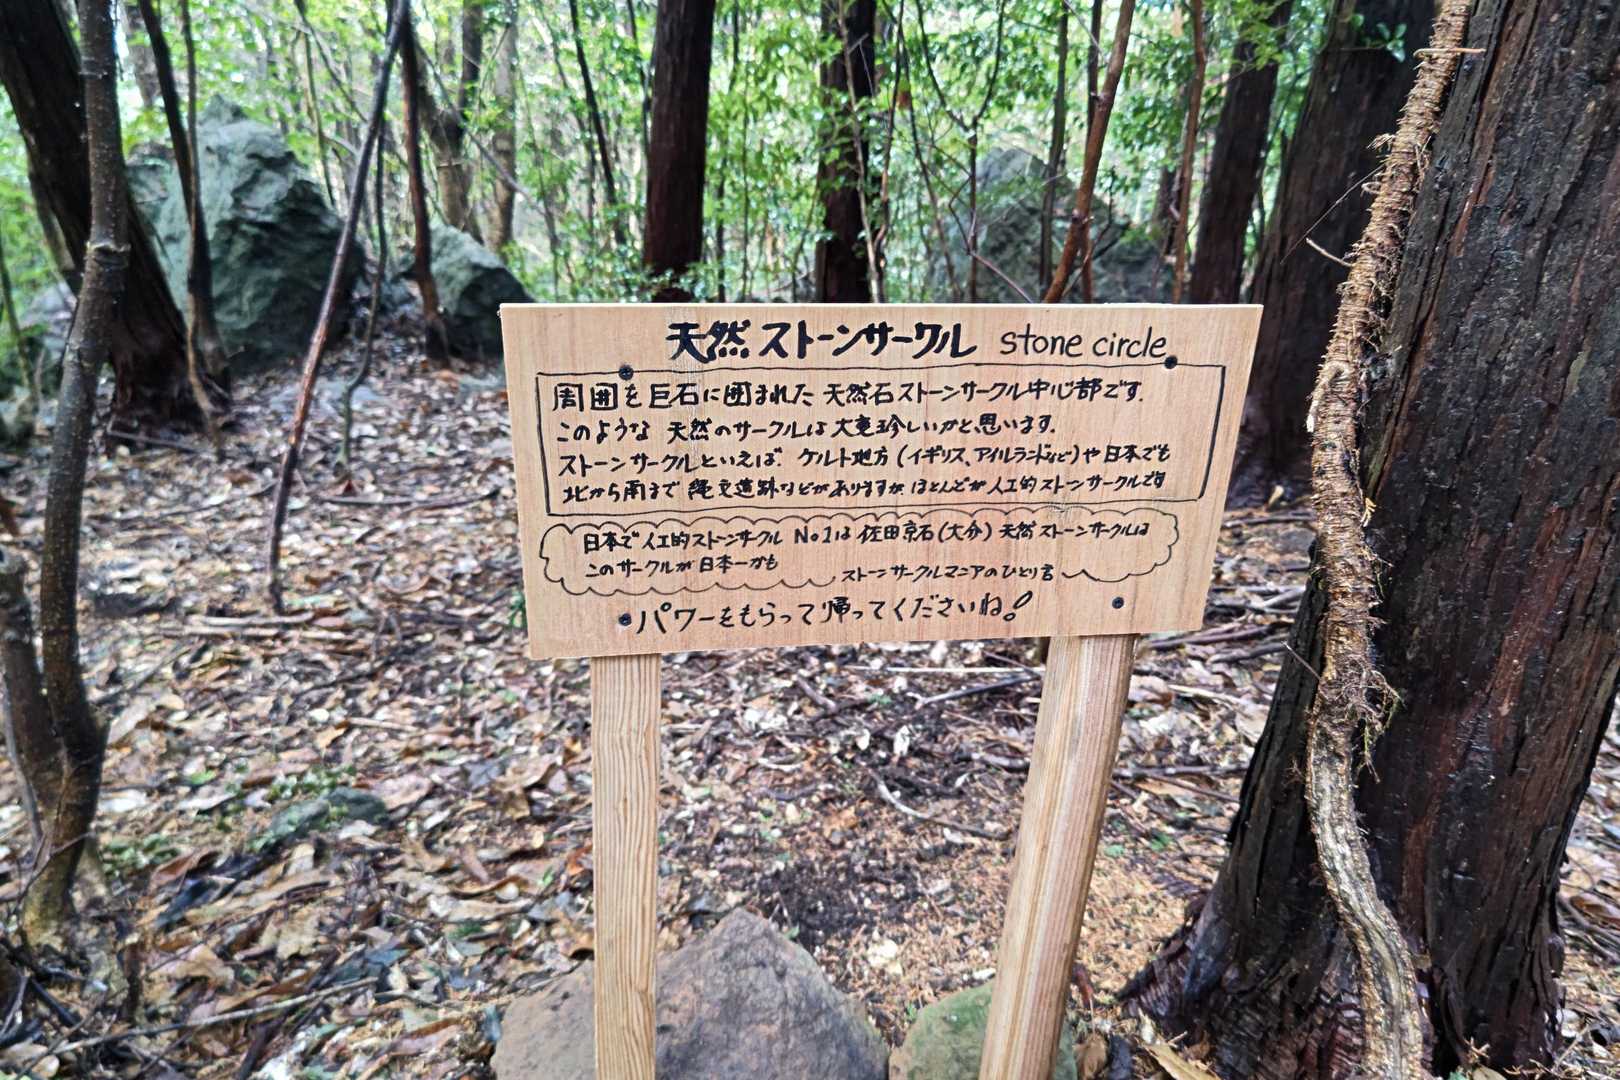 天然ストーンサークル stone circle
周囲を巨石に囲まれた 天然石ストーンサークル中心部です。
このような 天然のサークルは大変珍しいかと思います。
ストーンサークルといえば ケルト地方（イギリス、アイルランドなど）や日本でも
北から南まで 縄文遺跡などがありますが ほとんどが人工的ストーンサークルです
日本で人工的ストーンサークル No.1は 佐田京石（大分）天然ストーンサークルは
このサークルが日本一かも
ストーンサークルマニアのひとり言
パワーをもらって帰ってくださいね！